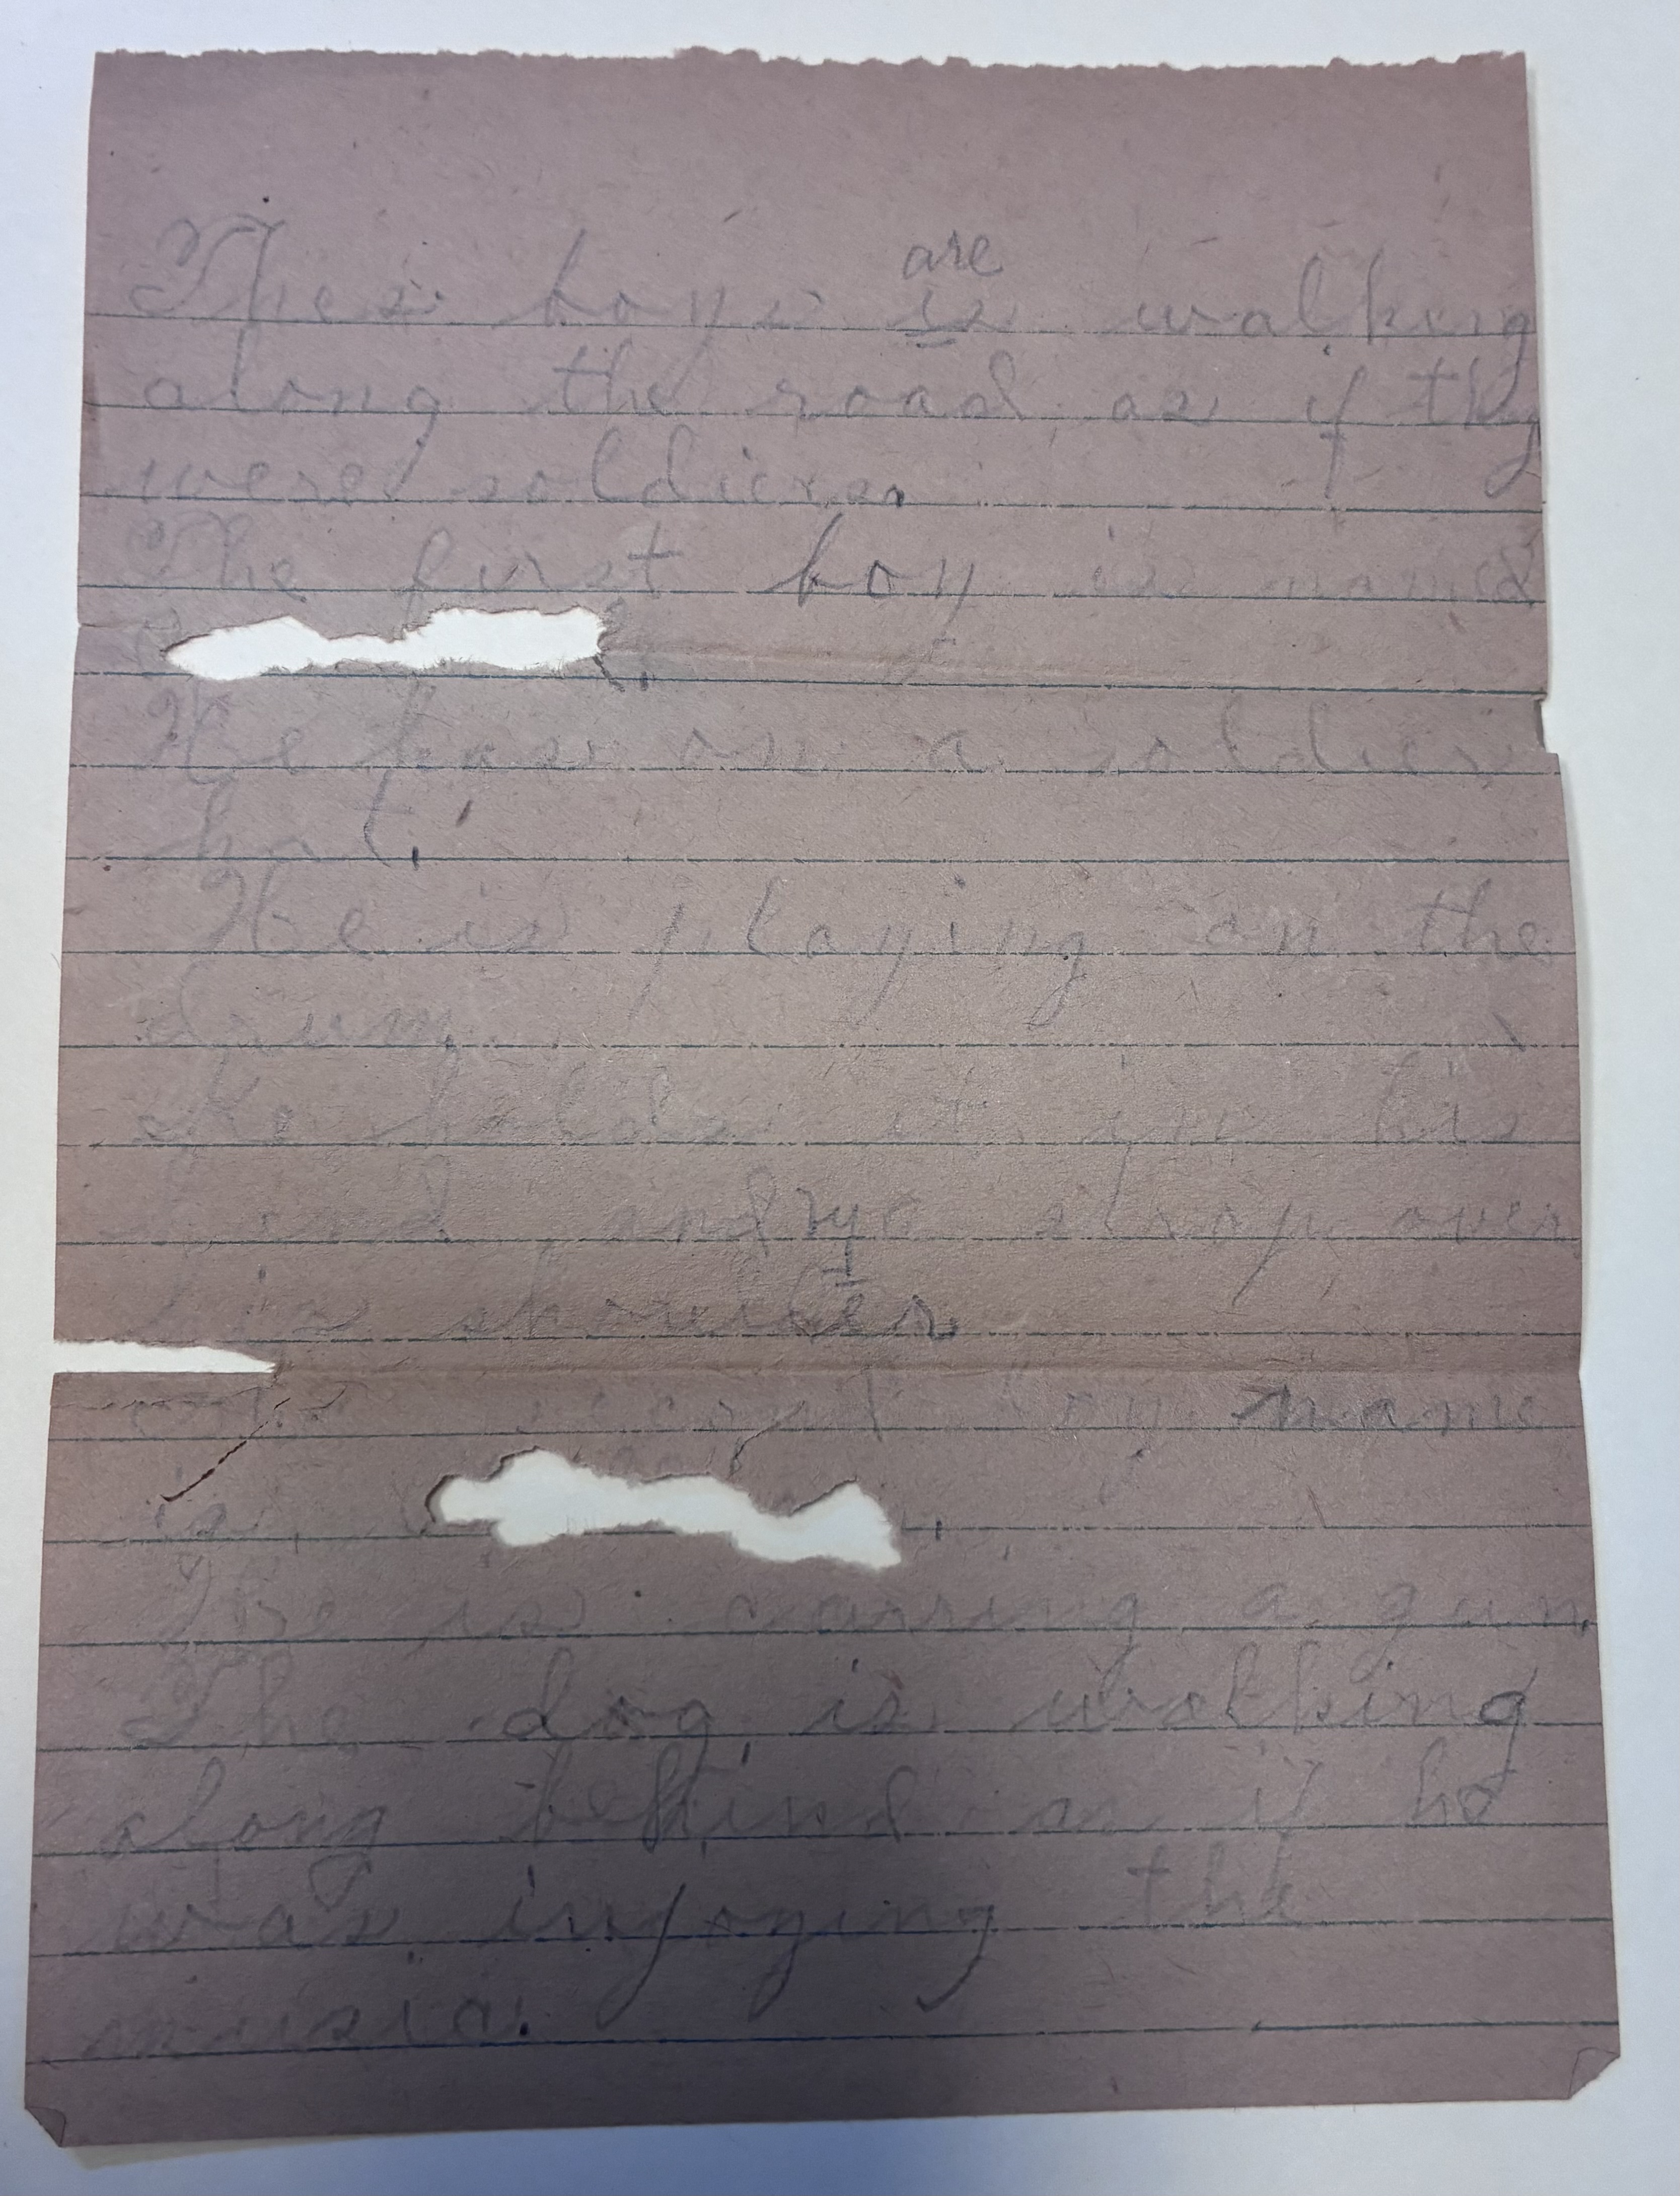 Thes boys are is walking
along the road as if thy
were soldiers.
The first boy is named
He has on a soldier
hat.
He is playing on the
drum.
He holds it in his
hand and strap over
his shoulder
second boy name
is
The is carring a gun.
The dog is walking
along behind as if he
was injoying the
music.